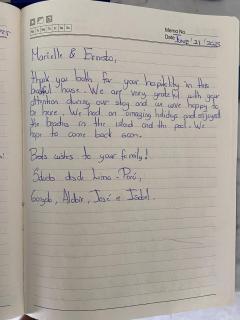 Memo No.
Date June / 21 / 2025
Marielle & Ernesto,
Thank you both for your hospitality in this
beatiful house. We are very grateful with your
attention during our stay and we were happy to
be here. We had an amazing holidays and enjoyed
the beaches in the island and the pool. We
hope to come back soon.
Bests wishes to your family!
Saludos desde Lima - Perú,
Aldair, José e Isabel.